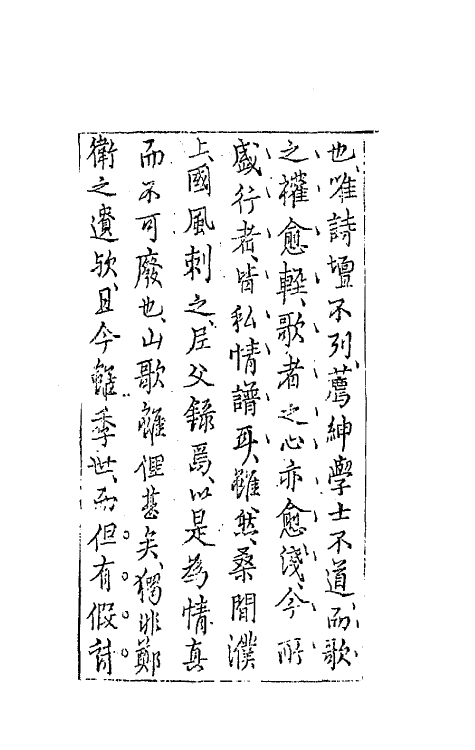 也唯詩壇不列薦紳學士不道而歌
之權愈輕歌者之心亦愈淺今所
盛行者皆私情譜耳雖然桑間濮
上國風刺之尼父錄焉以是為情真
而不可廢也山歌雖俚甚矣獨非鄭
衛之遺歟且今雖季世而但有假詩